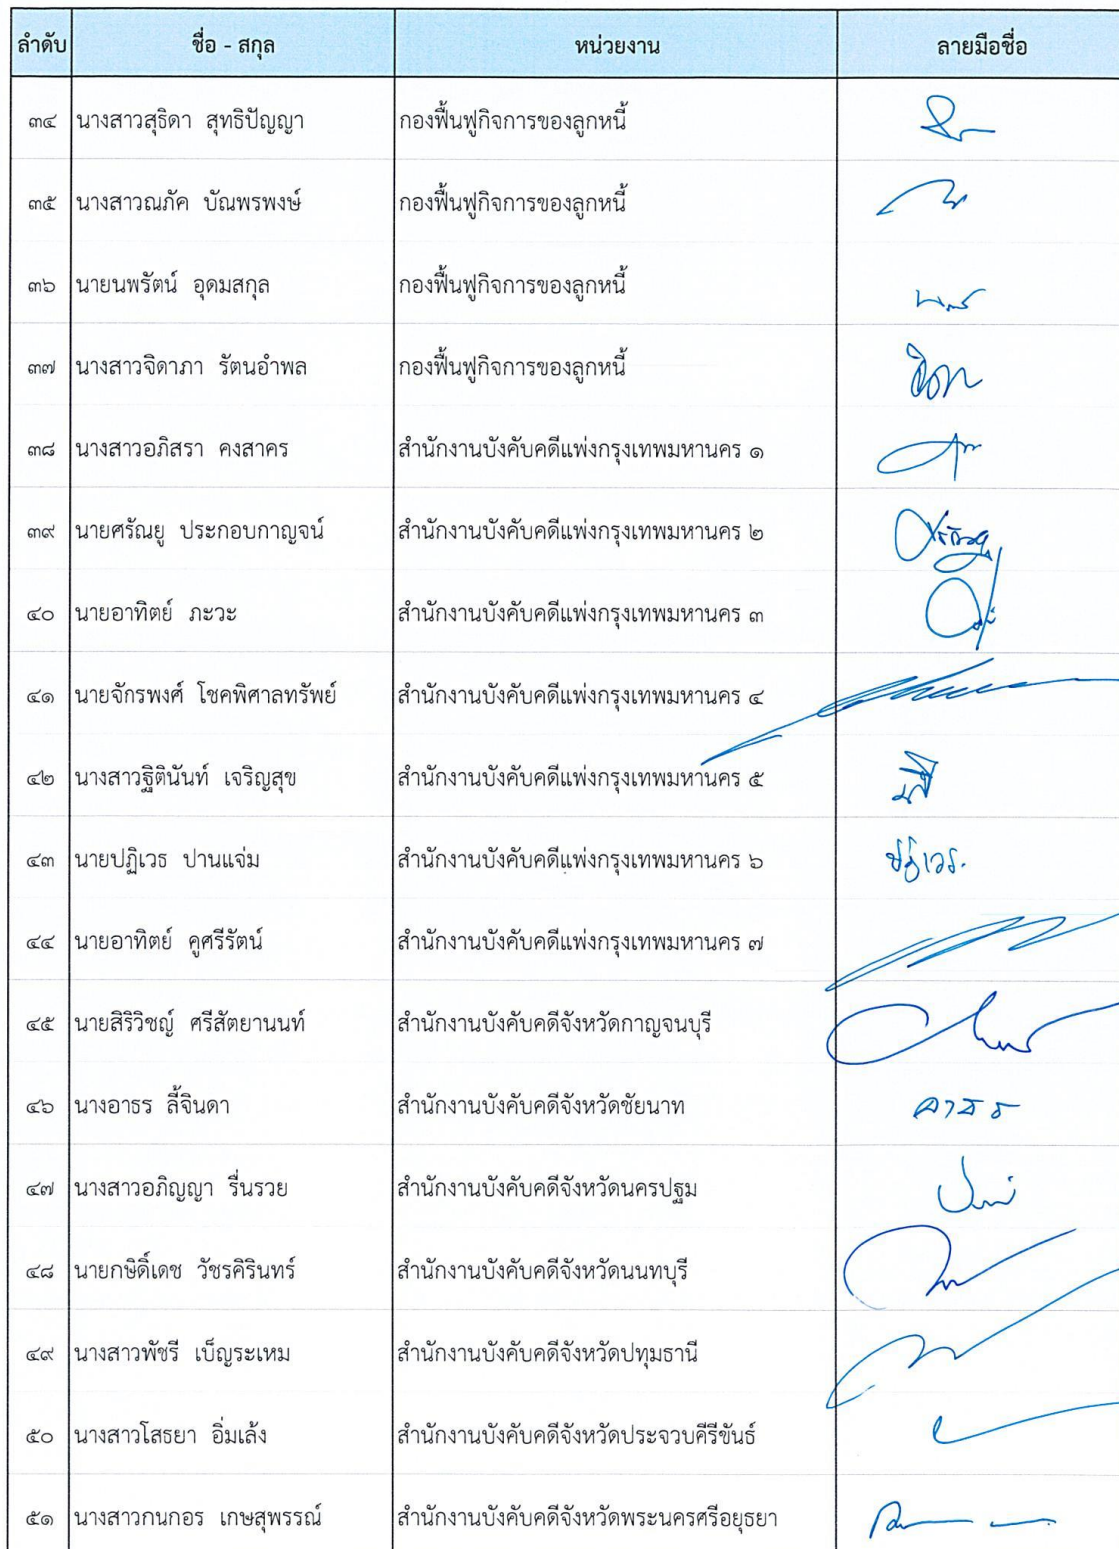 ลำดับ ชื่อ - สกุล หน่วยงาน ลายมือชื่อ
๓๔ นางสาวสุธิดา สุทธิปัญญา กองฟื้นฟูกิจการของลูกหนี้
๓๕ นางสาวณภัค บัณพรพงษ์ กองฟื้นฟูกิจการของลูกหนี้
๓๖ นายนพรัตน์ อุดมสกุล กองฟื้นฟูกิจการของลูกหนี้
๓๗ นางสาวจิดาภา รัตนอำพล กองฟื้นฟูกิจการของลูกหนี้
๓๘ นางสาวอภิสรา คงสาคร สำนักงานบังคับคดีแพ่งกรุงเทพมหานคร ๑
๓๙ นายศรัณยู ประกอบกาญจน์ สำนักงานบังคับคดีแพ่งกรุงเทพมหานคร ๒
๔๐ นายอาทิตย์ ภะวะ สำนักงานบังคับคดีแพ่งกรุงเทพมหานคร ๓
๔๑ นายจักรพงศ์ โชคพิศาลทรัพย์ สำนักงานบังคับคดีแพ่งกรุงเทพมหานคร ๔
๔๒ นางสาวฐิตินันท์ เจริญสุข สำนักงานบังคับคดีแพ่งกรุงเทพมหานคร ๕
๔๓ นายปฏิเวธ ปานแจ่ม สำนักงานบังคับคดีแพ่งกรุงเทพมหานคร ๖ ปฏิเวธ
๔๔ นายอาทิตย์ คูศรีรัตน์ สำนักงานบังคับคดีแพ่งกรุงเทพมหานคร ๗
๔๕ นายสิริวิชญ์ ศรีสัตยานนท์ สำนักงานบังคับคดีจังหวัดกาญจนบุรี
๔๖ นางอาธร ลี้จินดา สำนักงานบังคับคดีจังหวัดชัยนาท อาธร
๔๗ นางสาวอภิญญา รื่นรวย สำนักงานบังคับคดีจังหวัดนครปฐม
๔๘ นายกษิดิ์เดช วัชรคิรินทร์ สำนักงานบังคับคดีจังหวัดนนทบุรี
๔๙ นางสาวพัชรี เบ็ญระเหม สำนักงานบังคับคดีจังหวัดปทุมธานี
๕๐ นางสาวโสธยา อิ่มเล้ง สำนักงานบังคับคดีจังหวัดประจวบคีรีขันธ์
๕๑ นางสาวกนกอร เกษสุพรรณ์ สำนักงานบังคับคดีจังหวัดพระนครศรีอยุธยา